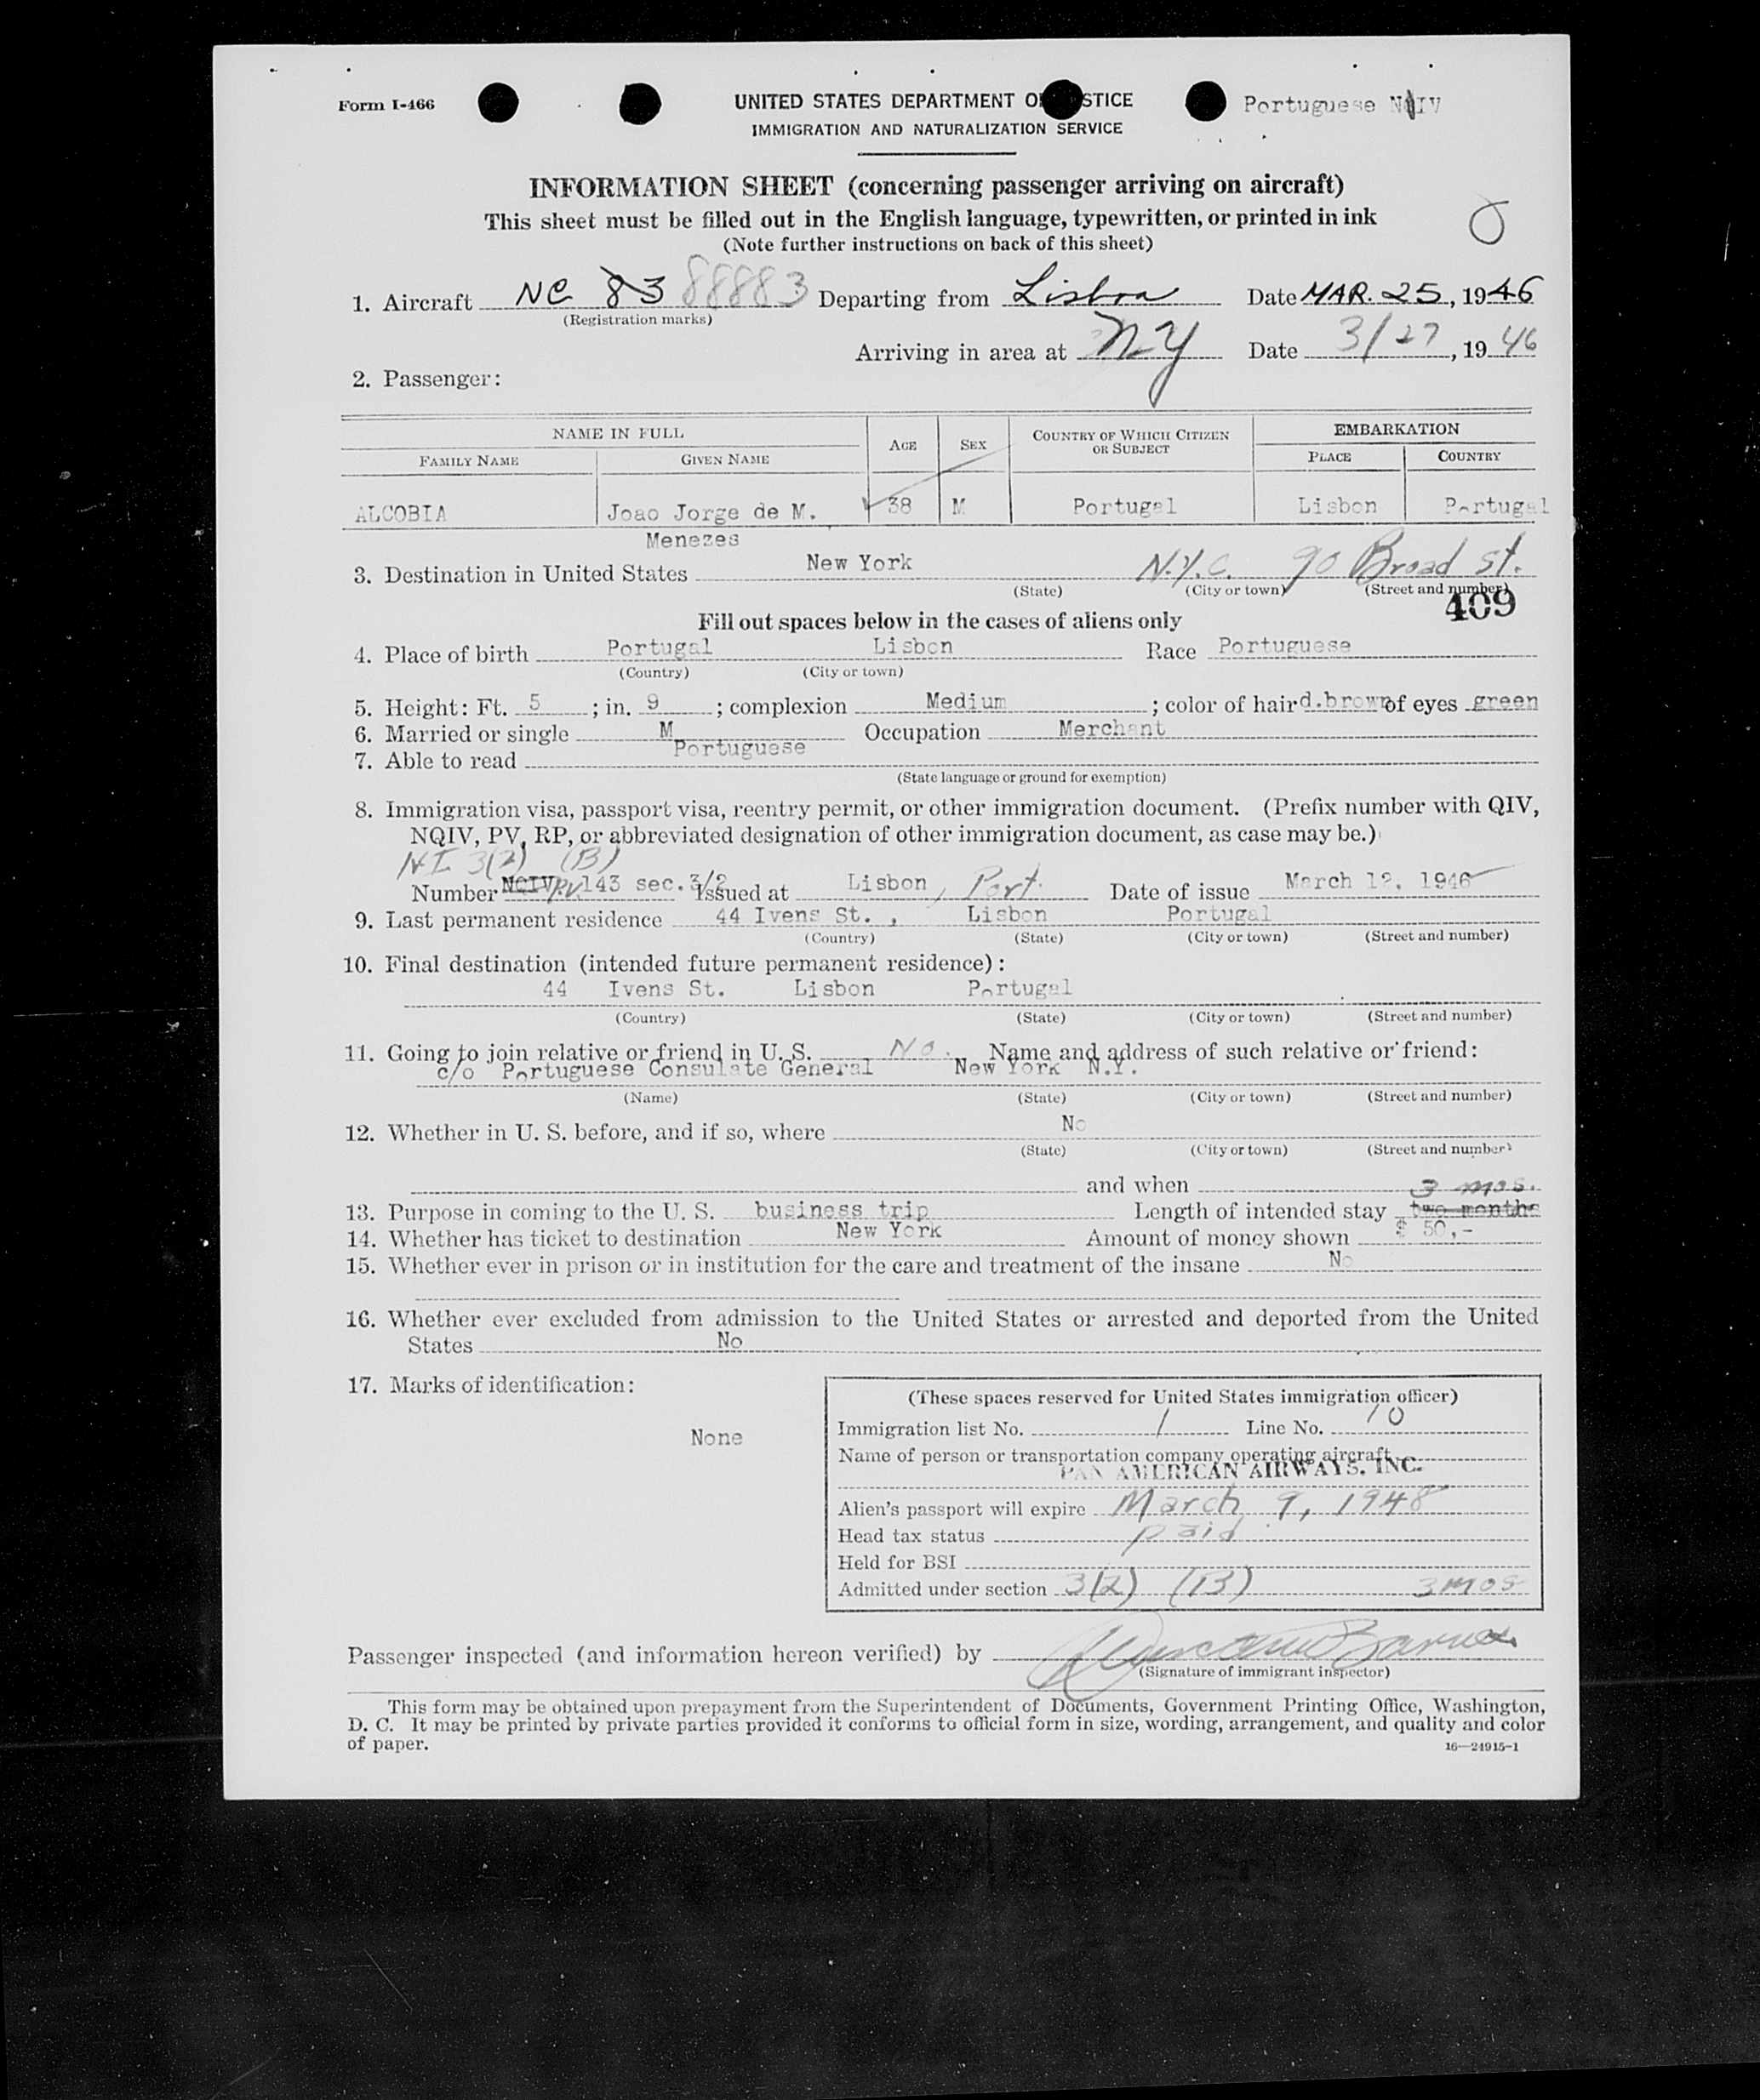 Form I-466
UNITED STATES DEPARTMENT O STICE
Portuguese
IMMIGRATION AND NATURALIZATION SERVICE
INFORMATION SHEET (concerning passenger arriving on aircraft)
This sheet must be filled out in the English language, typewritten, or printed in ink
(Note further instructions on back of this sheet)
1. Aircraft NC 83 88883 Departing from Lisboa Date MAR. 25, 1946
(Registration marks)
Arriving in area at NY Date 3/27, 1946
2. Passenger:
NAME IN FULL AGE SEX COUNTRY OF WHICH CITIZEN OR SUBJECT EMBARKATION
FAMILY NAME GIVEN NAME PLACE COUNTRY
ALCOBIA Joao Jorge de M. 38 M Portugal Lisbon Portugal
Menezes
3. Destination in United States New York N.Y.C. 90 Broad St.
(State) (City or town) (Street and number)
409
Fill out spaces below in the cases of aliens only
4. Place of birth Portugal Lisbon Race Portuguese
(Country) (City or town)
5. Height: Ft. 5; in. 9; complexion Medium; color of hair d.brown of eyes green
6. Married or single M Occupation Merchant
7. Able to read Portuguese
(State language or ground for exemption)
8. Immigration visa, passport visa, reentry permit, or other immigration document. (Prefix number with QIV,
NQIV, PV, RP, or abbreviated designation of other immigration document, as case may be.)
NI 3(2) (B)
Number PV 143 sec. 3/2 Issued at Lisbon, Port. Date of issue March 12, 1946
9. Last permanent residence 44 Ivens St., Lisbon Portugal
(Country) (State) (City or town) (Street and number)
10. Final destination (intended future permanent residence):
44 Ivens St. Lisbon Portugal
(Country) (State) (City or town) (Street and number)
11. Going to join relative or friend in U. S. No. Name and address of such relative or friend:
c/o Portuguese Consulate General New York N.Y.
(Name) (State) (City or town) (Street and number)
12. Whether in U. S. before, and if so, where No
(State) (City or town) (Street and number)
and when
3 mos.
13. Purpose in coming to the U. S. business trip Length of intended stay two months
14. Whether has ticket to destination New York Amount of money shown $ 50,-
15. Whether ever in prison or in institution for the care and treatment of the insane No
16. Whether ever excluded from admission to the United States or arrested and deported from the United
States No
17. Marks of identification:
None
(These spaces reserved for United States immigration officer)
Immigration list No. 1 Line No. 10
Name of person or transportation company operating aircraft
PAN AMERICAN AIRWAYS, INC.
Alien's passport will expire March 9, 1948
Head tax status paid
Held for BSI
Admitted under section 3(2) (B) 3 mos
Passenger inspected (and information hereon verified) by
(Signature of immigrant inspector)
This form may be obtained upon prepayment from the Superintendent of Documents, Government Printing Office, Washington,
D. C. It may be printed by private parties provided it conforms to official form in size, wording, arrangement, and quality and color
of paper.
16—24915-1